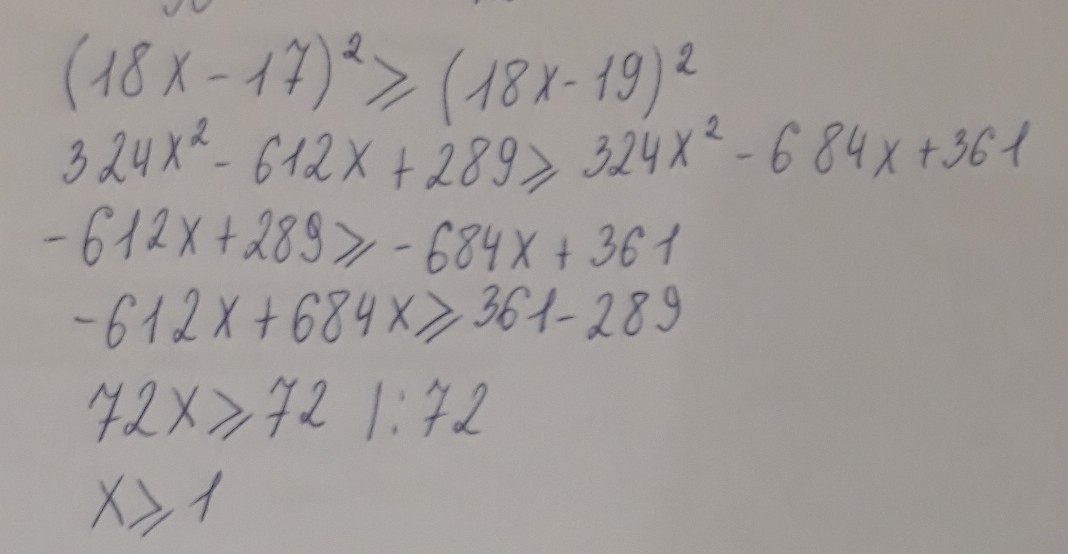 (18x-17)²⩾(18x-19)²
324x²-612x+289⩾324x²-684x+361
-612x+289⩾-684x+361
-612x+684x⩾361-289
72x⩾72 |:72
x⩾1